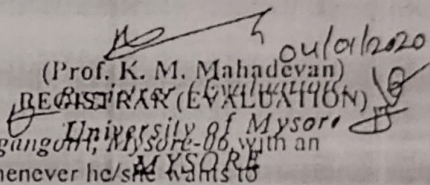 04/01/2020
(Prof. K. M. Mahadevan)
REGISTRAR (EVALUATION)
University of Mysore
Mysore-06, with an
MYSORE
whenever he/she wants to